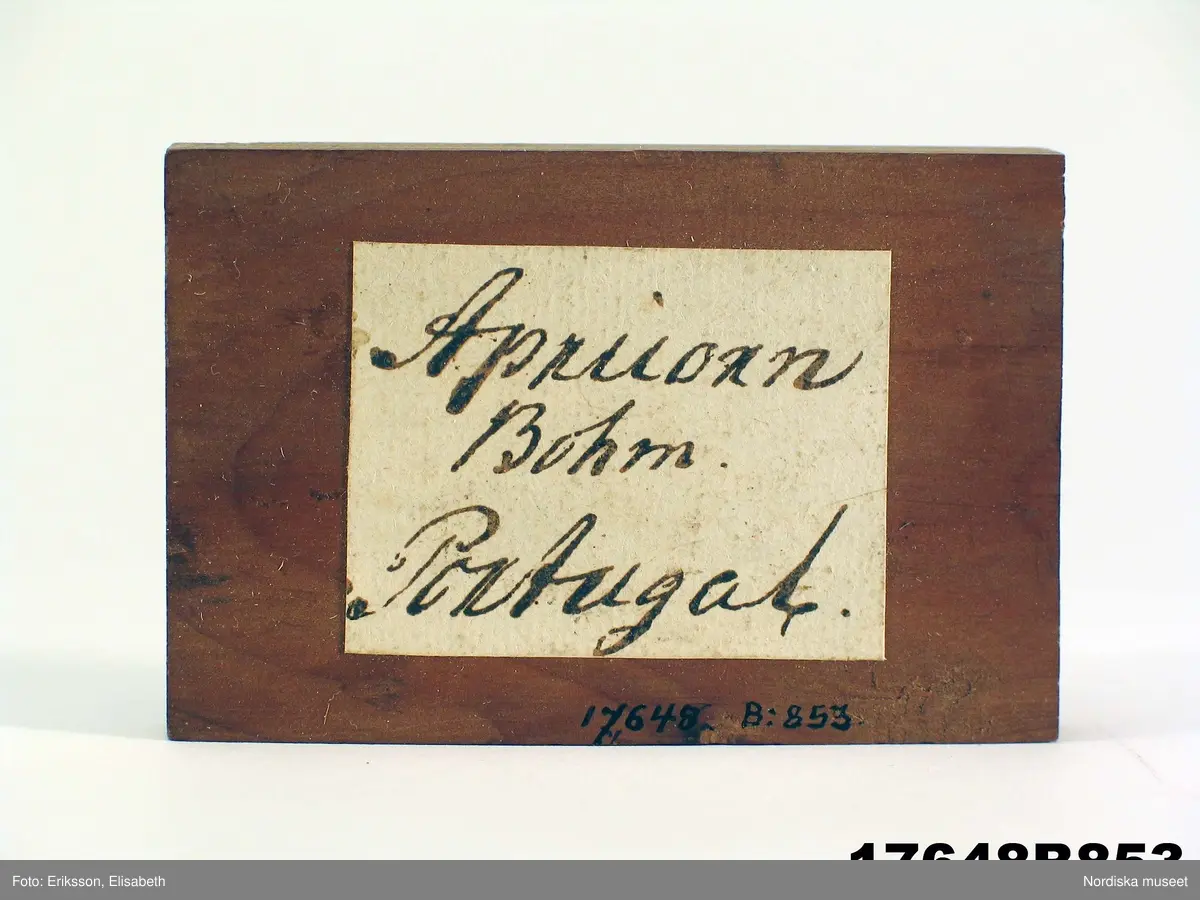 Apriiorn
Bohm.
Portugal.
17648. B:853.
17648B853
Foto: Eriksson, Elisabeth
Nordiska museet